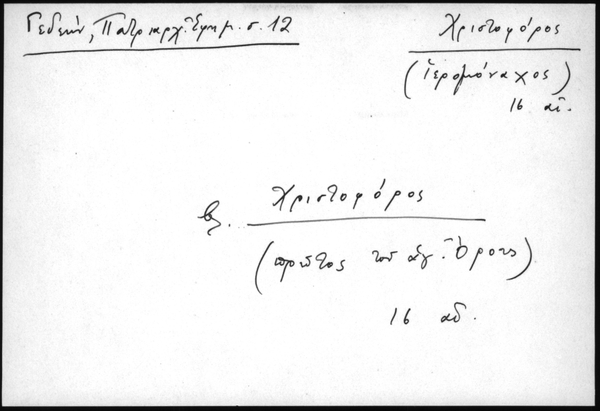 Γεδεών, Πατριαρχ. Ἐφημ. σ. 12
Χριστοφόρος
(Ἱερομόναχος)
16 αἰ.
βλ. Χριστοφόρος
(πρῶτος τοῦ ἁγ. Ὄρους)
16 αἰ.